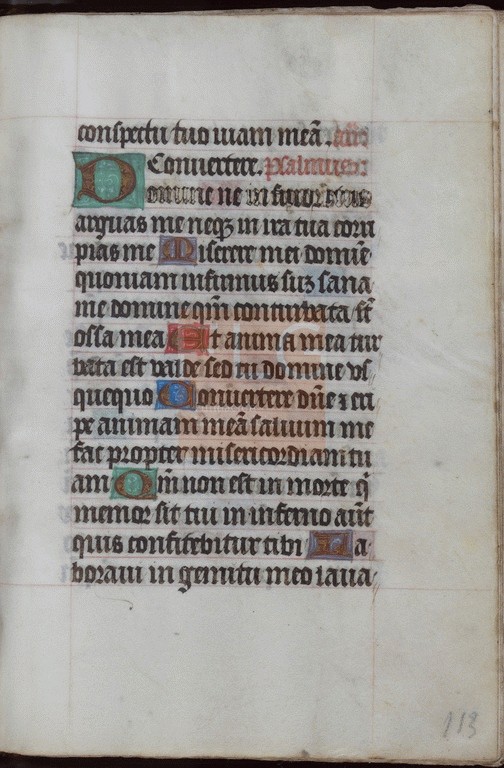 conspectu tuo uiam meā. añā
Conuertere. psalmus
Domine ne in furor
arguas me neqʒ in ira tua corri
pias me Miserere mei domīe
quoniam infirmus suʒ sana
me domine qm̄ conturbata st̄
ossa mea Et anima mea tur
bata est valde sed tu domine vs
quequo Conuertere dn̄e ⁊ eri
pe animam meā saluum me
fac propter misericordiam tu
am Qm̄ non est in morte q̄
memor sit tui in inferno aūt
quis confitebitur tibi La-
boraui in gemitu meo laua-
113